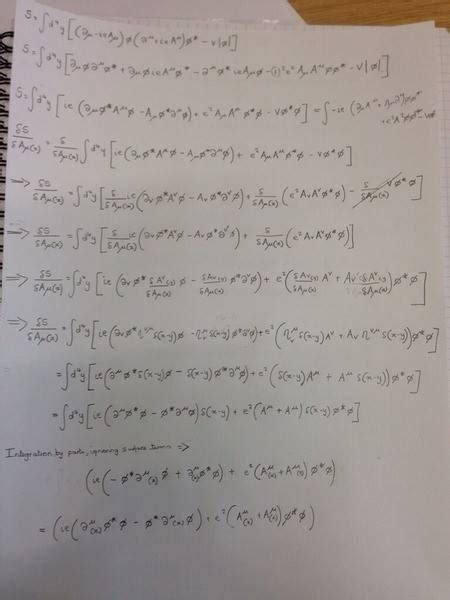 S = ∫d⁴y [(∂μ - ieAμ)φ(∂^μ + ieA^μ)φ* - V|φ|]
S = ∫d⁴y [∂μφ∂^μφ* + ∂μφ ieA^μφ* - ∂^μφ* ieAμφ - (i)²e²AμA^μφφ* - V|φ|]
S = ∫d⁴y [ie(∂μφ*A^μφ - Aμφ*∂^μφ) + e²AμA^μφ*φ - Vφ*φ] = ∫-ie
δS/δAμ(x) = δ/δAμ(x) ∫d⁴y [ie(∂μφ*A^μφ - Aμφ*∂^μφ) + e²AμA^μφ*φ - Vφ*φ]
⇒ δS/δAμ(x) = ∫d⁴y [δ/δAμ(x) ie(∂νφ*A^νφ - Aνφ*∂^νφ) + δ/δAμ(x) (e²AνA^νφ*φ) - δ/δAμ(x) Vφ*φ]
⇒ δS/δAμ(x) = ∫d⁴y [δ/δAμ(x) ie(∂νφ*A^νφ - Aνφ*∂^νφ) + δ/δAμ(x) (e²AνA^νφφ*)]
⇒ δS/δAμ(x) = ∫d⁴y [ie(∂νφ* δA^ν(y)/δAμ(x) φ - δAν(y)/δAμ(x) φ*∂^νφ) + e²(δAν(y)/δAμ(x) A^ν + Aν δA^ν(y)/δAμ(x))φ*φ]
⇒ δS/δAμ(x) = ∫d⁴y [ie(∂νφ*η^νμ δ(x-y)φ - η_ν^μ δ(x-y)φ*∂^νφ) + e²(η_ν^μ δ(x-y)A^ν + Aν η^νμ δ(x-y))φ*φ]
= ∫d⁴y [ie(∂^μφ*δ(x-y)φ - δ(x-y)φ*∂^μφ) + e²(δ(x-y)A^μ + A^μ δ(x-y))φ*φ]
= ∫d⁴y [ie(∂^μφ*φ - φ*∂^μφ)δ(x-y) + e²(A^μ + A^μ)δ(x-y)φ*φ]
Integration by parts, ignoring surface terms ⇒
(ie(-φ*∂^μ(x)φ + ∂^μ(x)φ*φ) + e²(A^μ(x) + A^μ(x))φ*φ)
= (ie(∂^μ(x)φ*φ - φ*∂^μ(x)φ) + e²(A^μ(x) + A^μ(x))φ*φ)